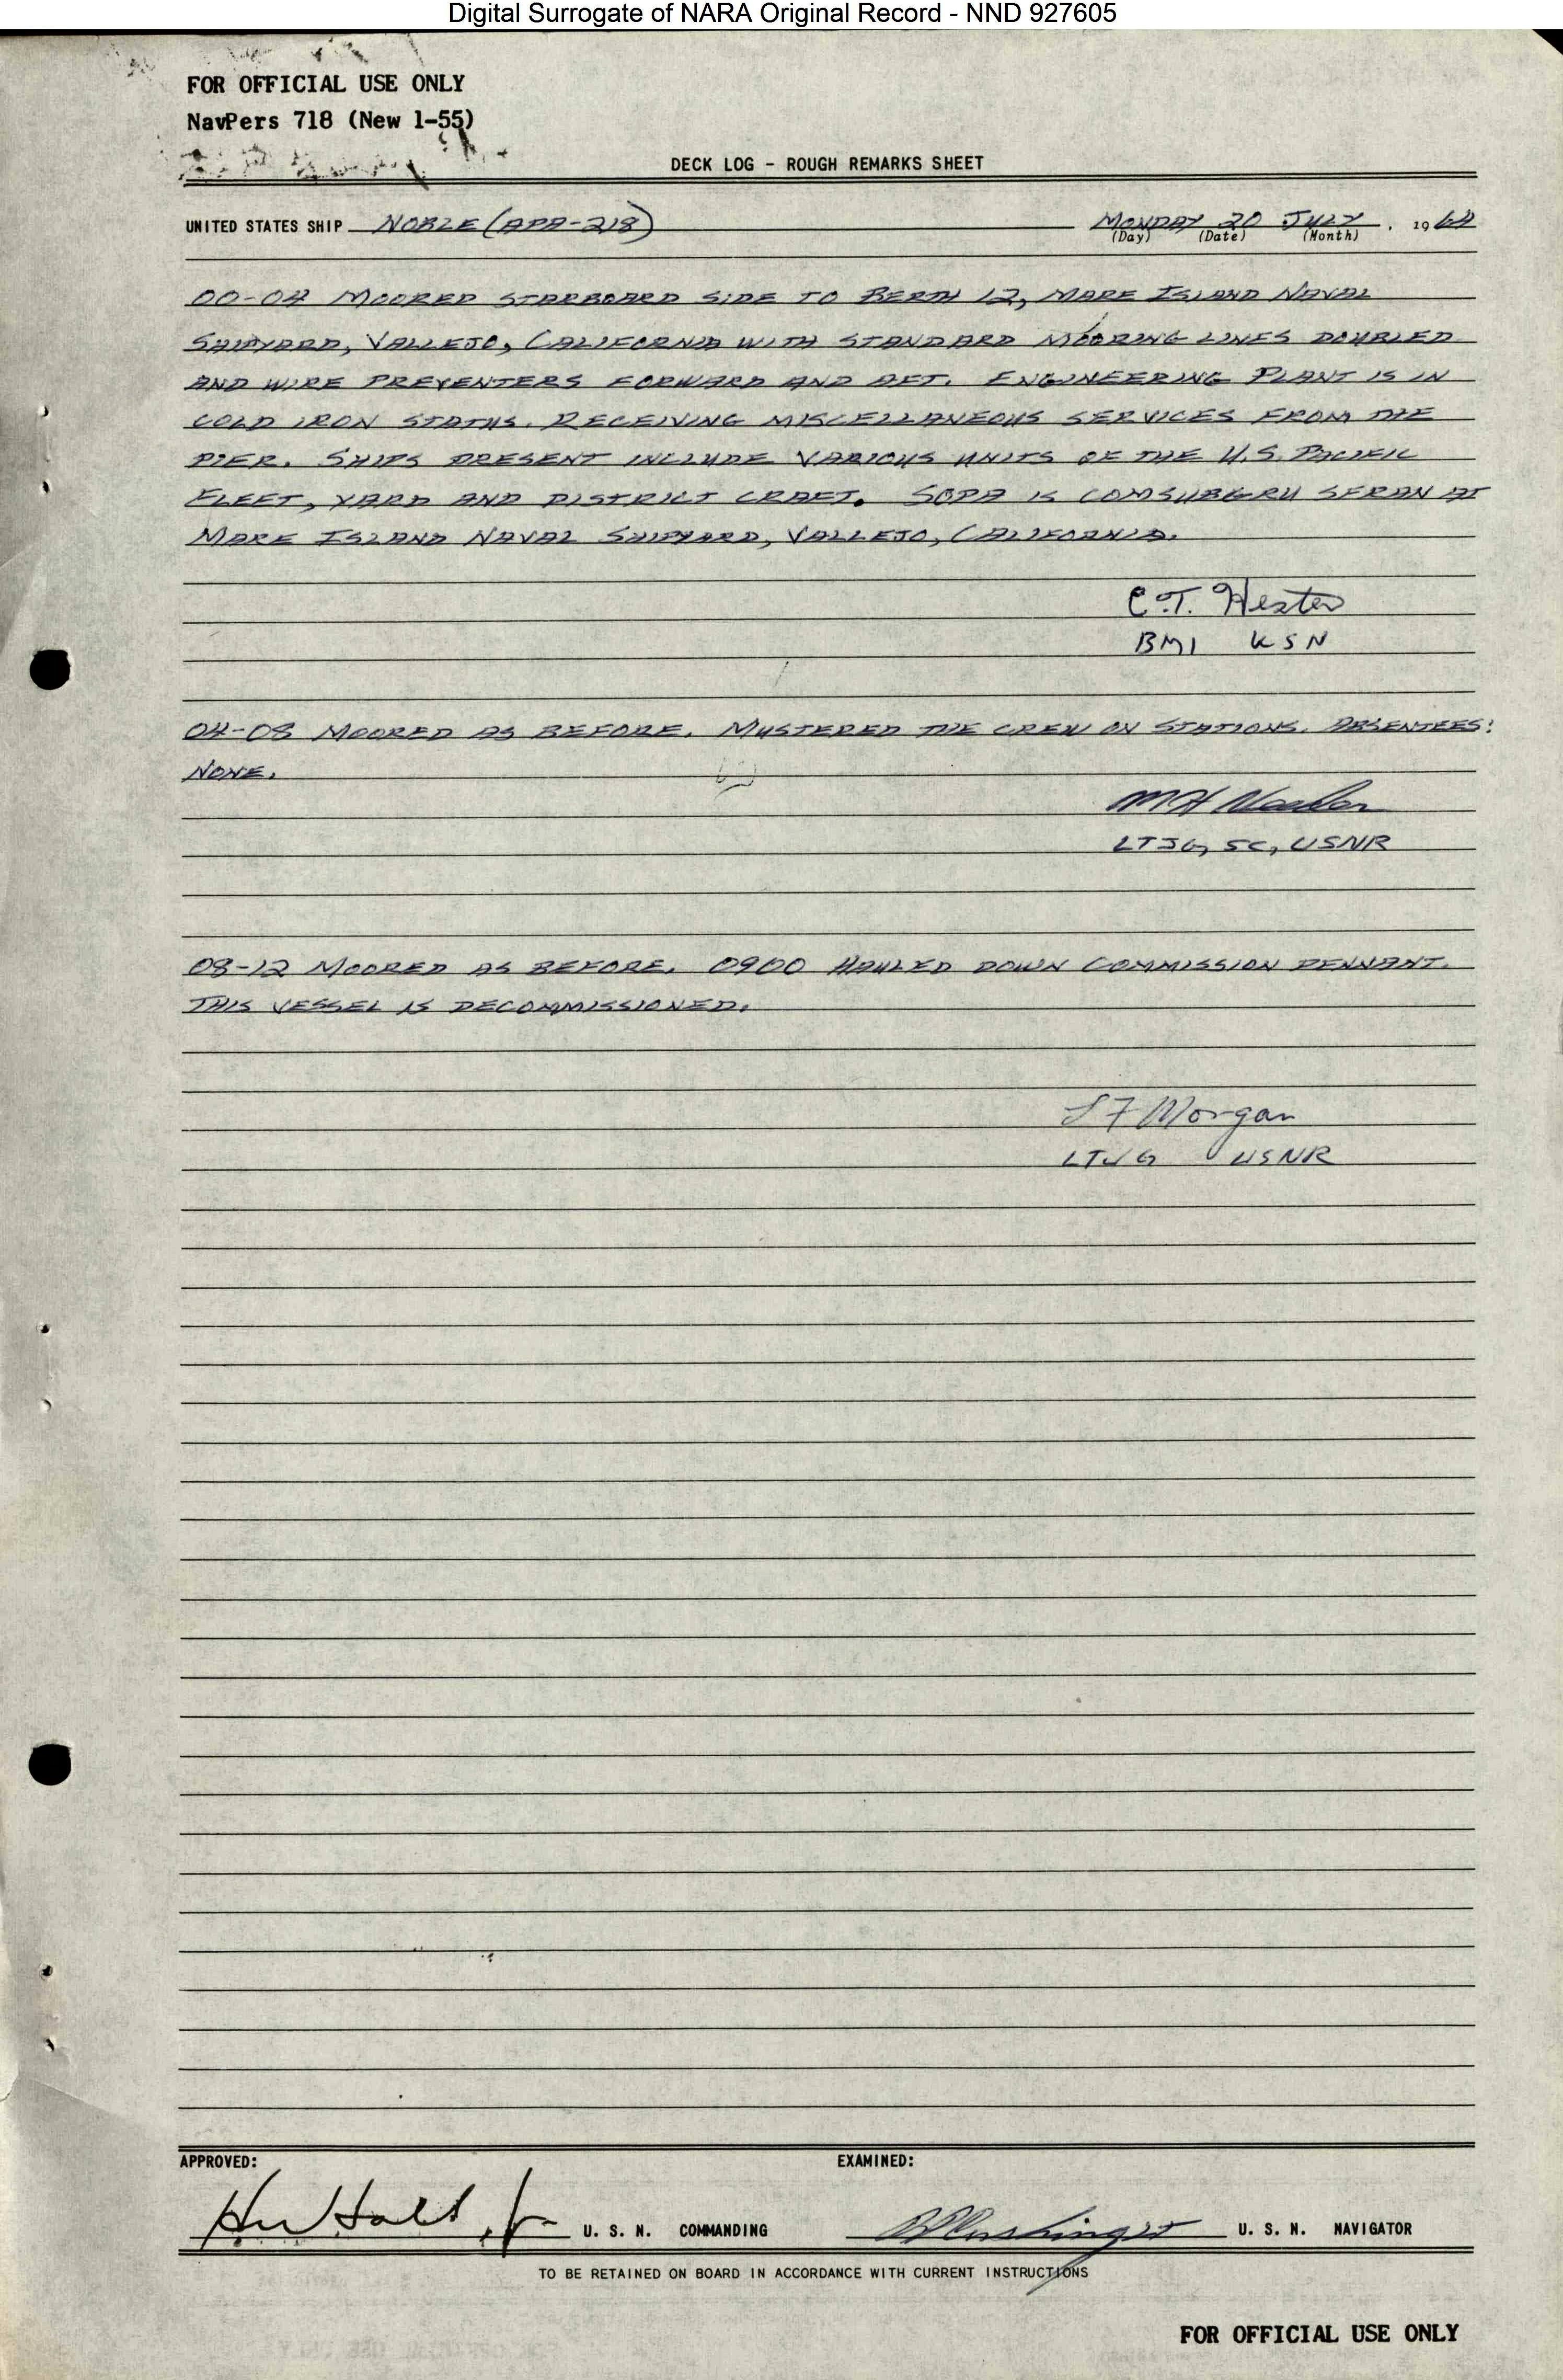 Digital Surrogate of NARA Original Record - NND 927605
FOR OFFICIAL USE ONLY
NavPers 718 (New 1-55)
DECK LOG - ROUGH REMARKS SHEET
UNITED STATES SHIP NOBLE (APA-218) MONDAY 20 JULY, 1964
(Day) (Date) (Month)
00-04 MOORED STARBOARD SIDE TO BERTH 12, MARE ISLAND NAVAL
SHIPYARD, VALLEJO, CALIFORNIA WITH STANDARD MOORING LINES DOUBLED
AND WIRE PREVENTERS FORWARD AND AFT. ENGINEERING PLANT IS IN
COLD IRON STATUS. RECEIVING MISCELLANEOUS SERVICES FROM THE
PIER. SHIPS PRESENT INCLUDE VARIOUS UNITS OF THE U.S. PACIFIC
FLEET, YARD AND DISTRICT CRAFT. SOPA IS COMSUBGRU SFRAN AT
MARE ISLAND NAVAL SHIPYARD, VALLEJO, CALIFORNIA.
C.T. Hester
BM1 USN
04-08 MOORED AS BEFORE. MUSTERED THE CREW ON STATIONS. ABSENTEES:
NONE.
MH
LTJG, SC, USNR
08-12 MOORED AS BEFORE. 0900 HAULED DOWN COMMISSION PENNANT.
THIS VESSEL IS DECOMMISSIONED.
Morgan
LTJG USNR
APPROVED: EXAMINED:
U. S. N. COMMANDING U. S. N. NAVIGATOR
TO BE RETAINED ON BOARD IN ACCORDANCE WITH CURRENT INSTRUCTIONS
FOR OFFICIAL USE ONLY